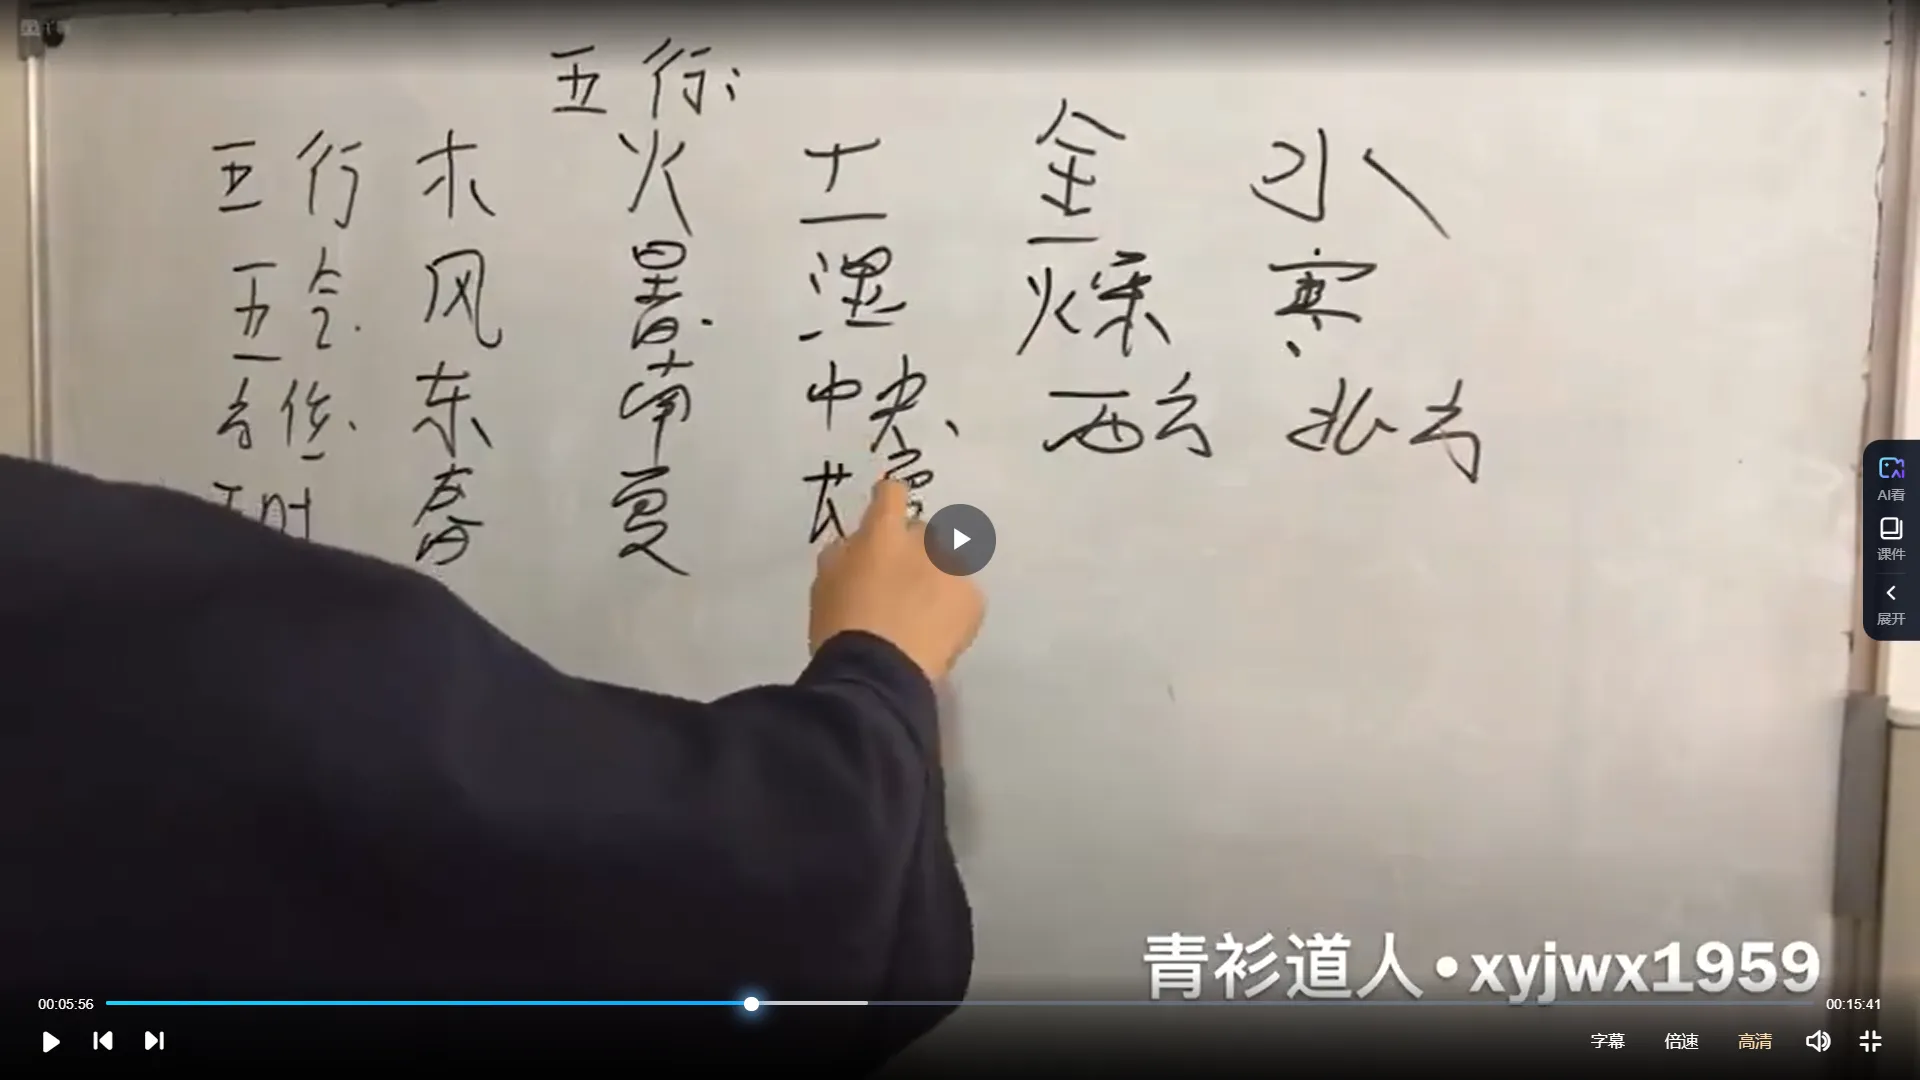 五行:
五行 木 火 土 金 水
五令. 风 暑. 湿 燥 寒
方位. 东 南 中央、 西方 北方
五时 春 夏 长夏
AI看
课件
展开
青衫道人•xyjwx1959
00:05:56
00:15:41
字幕 倍速 高清